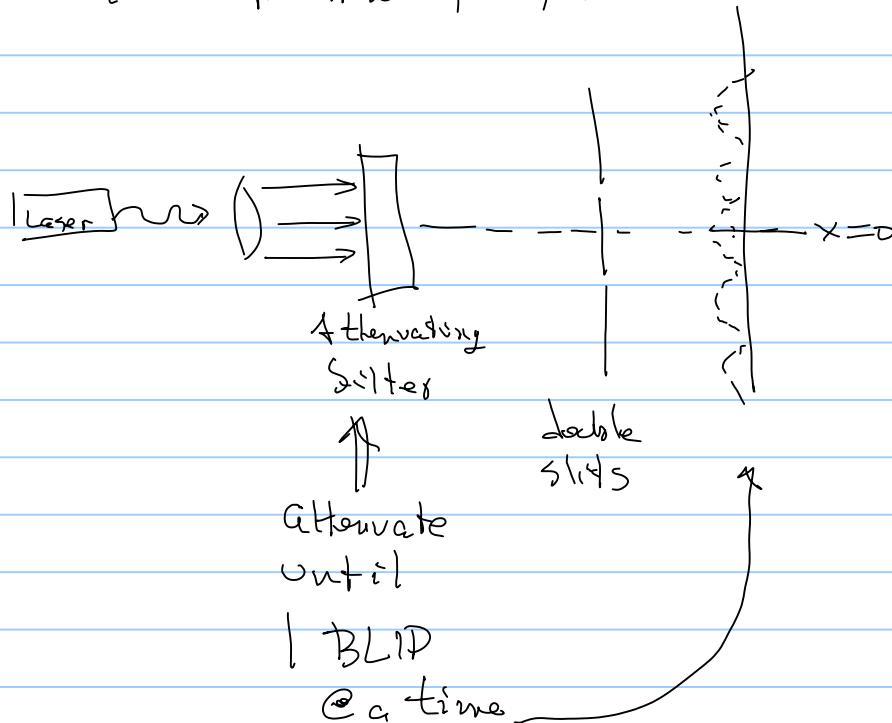 Laser
x=0
Attenuating
filter
double
slits
Attenuate
until
1 BLIP
@ a time